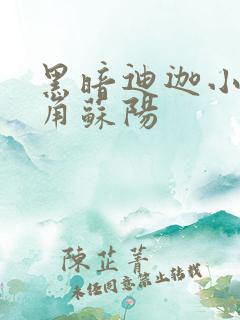 黑暗迪迦小
角蘇陽
陳芷菁
未經同意禁止轉載